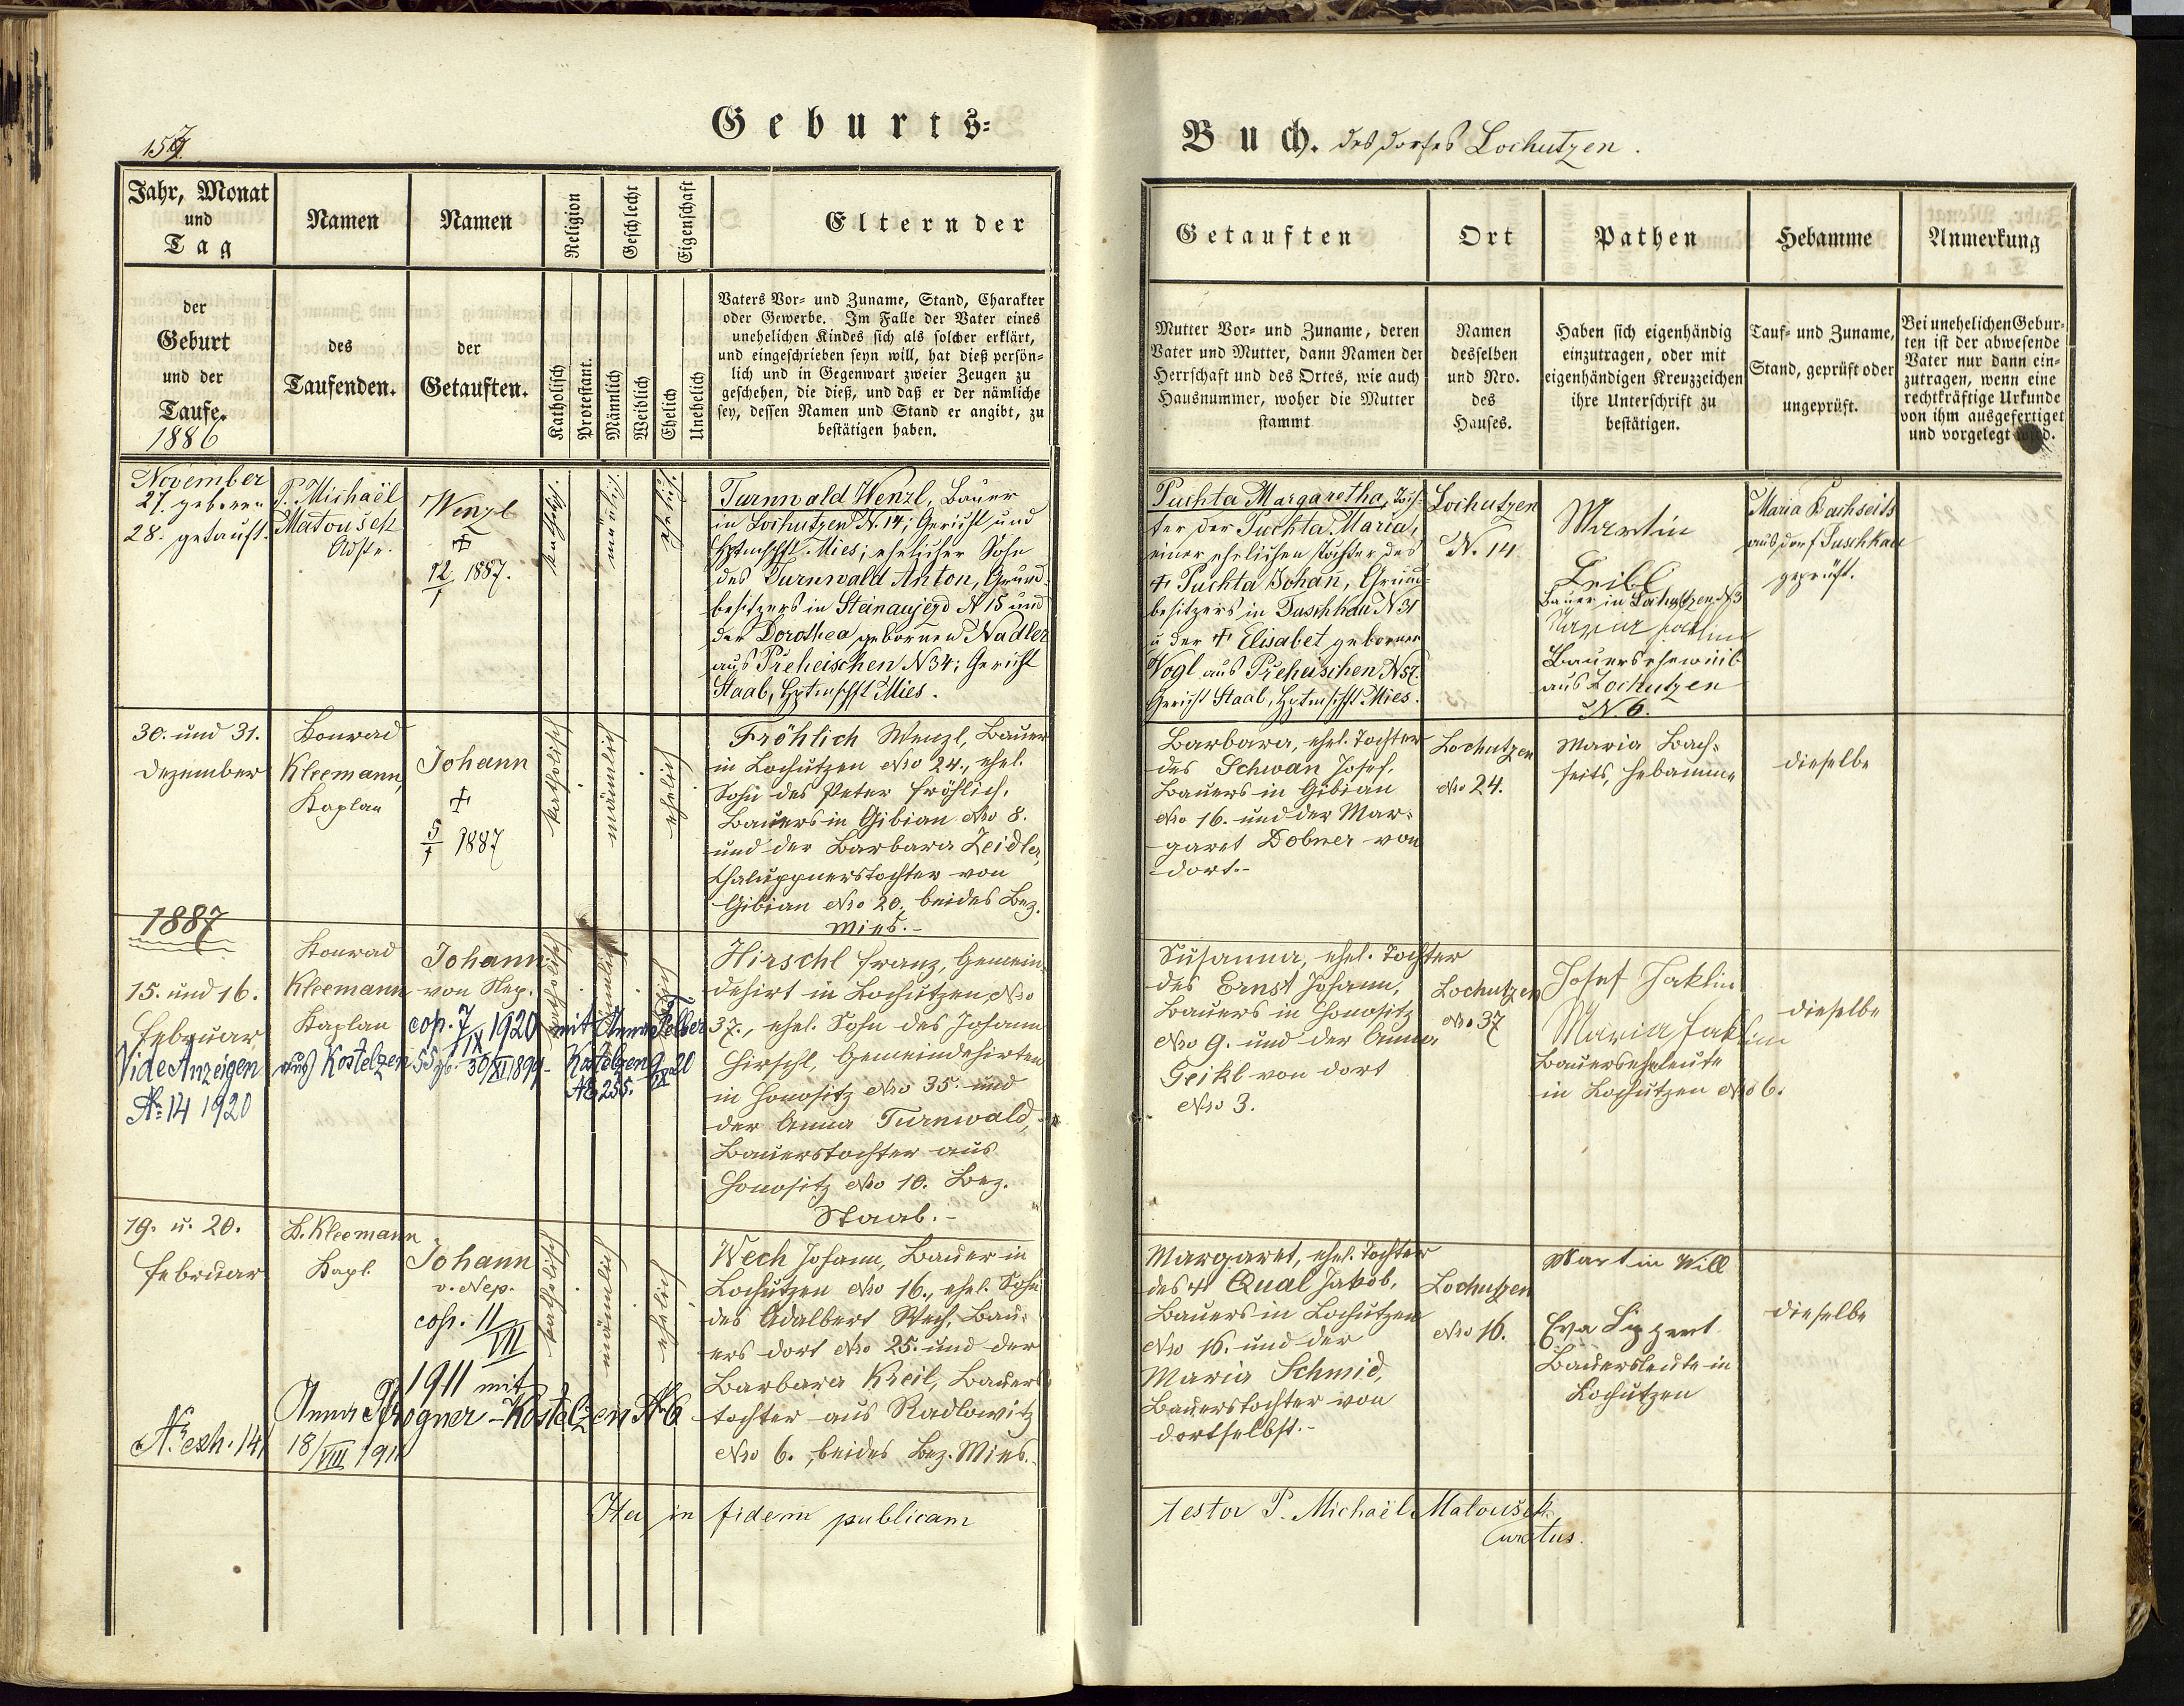 157
Geburts-
Jahr, Monat
und
Tag
Namen
Namen
Religion
Geschlecht
Eigenschaft
Eltern der
der
Geburt
und der
Taufe.
1886
des
Taufenden.
der
Getauften.
Katholisch
Protestant.
Männlich
Weiblich
Ehelich
Unehelich
Vaters Vor- und Zuname, Stand, Charakter
oder Gewerbe. Im Falle der Vater eines
unehelichen Kindes sich als solcher erklärt,
und eingeschrieben seyn will, hat dieß persön-
lich und in Gegenwart zweier Zeugen zu
geschehen, die dieß, und daß er der nämliche
sey, dessen Namen und Stand er angibt, zu
bestätigen haben.
November
27. geboren
28. getauft.
P. Michaël
Matoušek
Wenzl
✠
12/1 1887.
kathol.
männl.
ehelich.
Turnwald Wenzl, Bauer
in Lochutzen N. 14; Gericht und
Hptmschft Mies; ehelicher Sohn
des Turnwald Anton, Grund-
besitzers in Steinaujezd N 15 und
der Dorothea gebornen Nadler
aus Preheischen N 34; Gericht
Staab, Hptmschft Mies.
30. und 31.
Dezember
Konrad
Kleemann,
Kaplan
Johann
✠
5/1 1887
katholisch
männlich
ehelich
Fröhlich Wenzl, Bauer
in Lochutzen Nro 24., ehel.
Sohn des Peter Fröhlich,
Bauers in Gibian Nro 8.
und der Barbara Zeidler,
Chaluppnerstochter von
Gibian Nro 20., beides Bez.
Mies.-
1887
15. und 16.
Februar
Vide Anzeigen
No 14 1920
Konrad
Kleemann
Kaplan
Johann
von Nep.
cop. 7/IX 1920 mit Anna Felber
aus Kostelzen 55 gb. 30/XI 1899 - Kostelzen 9/IX 20
No 255.
katholisch
männlich
ehelich
Hirschl Franz, Gemein-
dehirt in Lochutzen Nro
37., ehel. Sohn des Johann
Hirschl, Gemeindehirten
in Honositz Nro 35. und
der Anna Turnwald,
Bauerstochter aus
Honositz Nro 10. Bez.
Staab.-
19. u. 20.
Februar
K. Kleemann
Kapl.
Johann
v. Nep.
cop. 11/VII
1911 mit
Anna Pfrogner - Kostelzen No 6
N. exh. 141
18/VIII 1911
katholisch
männlich
ehelich
Wech Johann, Bauer in
Lochutzen Nro 16., ehel. Sohn
des Adalbert Wech, Bau-
ers dort Nro 25. und der
Barbara Kreil, Bauers-
tochter aus Radlowitz
Nro 6., beides Bez. Mies.
Ita in fidem publicam
Buch. des Dorfes Lochutzen.
Getauften
Ort
Pathen
Hebamme
Anmerkung
Mutter Vor- und Zuname, deren
Vater und Mutter, dann Namen der
Herrschaft und des Ortes, wie auch
Hausnummer, woher die Mutter
stammt
Namen
desselben
und Nro.
des
Hauses.
Haben sich eigenhändig
einzutragen, oder mit
eigenhändigen Kreuzzeichen
ihre Unterschrift zu
bestätigen.
Tauf- und Zuname,
Stand, geprüft oder
ungeprüft.
Bei unehelichen Gebur-
ten ist der abwesende
Vater nur dann ein-
zutragen, wenn eine
rechtkräftige Urkunde
von ihm ausgefertiget
und vorgelegt wird.
Puchta Margaretha, Toch-
ter der Puchta Maria,
einer ehelichen Tochter des
✠ Puchta Johan̄, Grund-
besitzers in Tuschkau N 31
u. der ✠ Elisabet geborner
Vogl aus Preheischen N 57.
Gericht Staab, Hptmschft Mies.
Lochutzen
N. 14.
Martin
Leibl
Bauer in Lochutzen N 3
Maria Jaklin
Bauerseheweib
aus Lochutzen
N. 6.
Maria Bachseits
aus Dorf Tuschkau
geprüft.
Barbara, ehel. Tochter
des Schwan Josef,
Bauers in Gibian
Nro 16. und der Mar-
garet Dobner von
dort.-
Lochutzen
Nro 24.
Maria Bach-
seits, Hebamme
dieselbe
Susanna, ehel. Tochter
des Ernst Johann,
Bauers in Honositz
Nro 9. und der Anna
Geikl von dort
Nro 3.
Lochutzen
Nro 37
Josef Jaklin
Maria Jaklin
Bauerseheleute
in Lochutzen Nro 6.
dieselbe
Margaret, ehel. Tochter
des ✠ Qual Jakob,
Bauers in Lochutzen
Nro 16. und der
Maria Schmid,
Bauerstochter von
dortselbst.-
Lochutzen
Nro 16.
Martin Will
Eva Lippert
Bauersleute in
Lochutzen
dieselbe
testor P. Michaël Matoušek
Curatus.